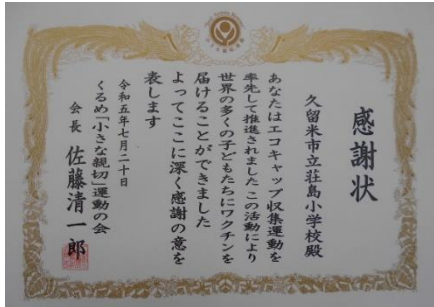 感謝状
久留米市立荘島小学校殿
あなたはエコキャップ収集運動を
率先して推進されました この活動により
世界の多くの子どもたちにワクチンを
届けることができました
よってここに深く感謝の意を
表します
令和五年七月二十日
くるめ「小さな親切」運動の会
会長 佐藤清一郎